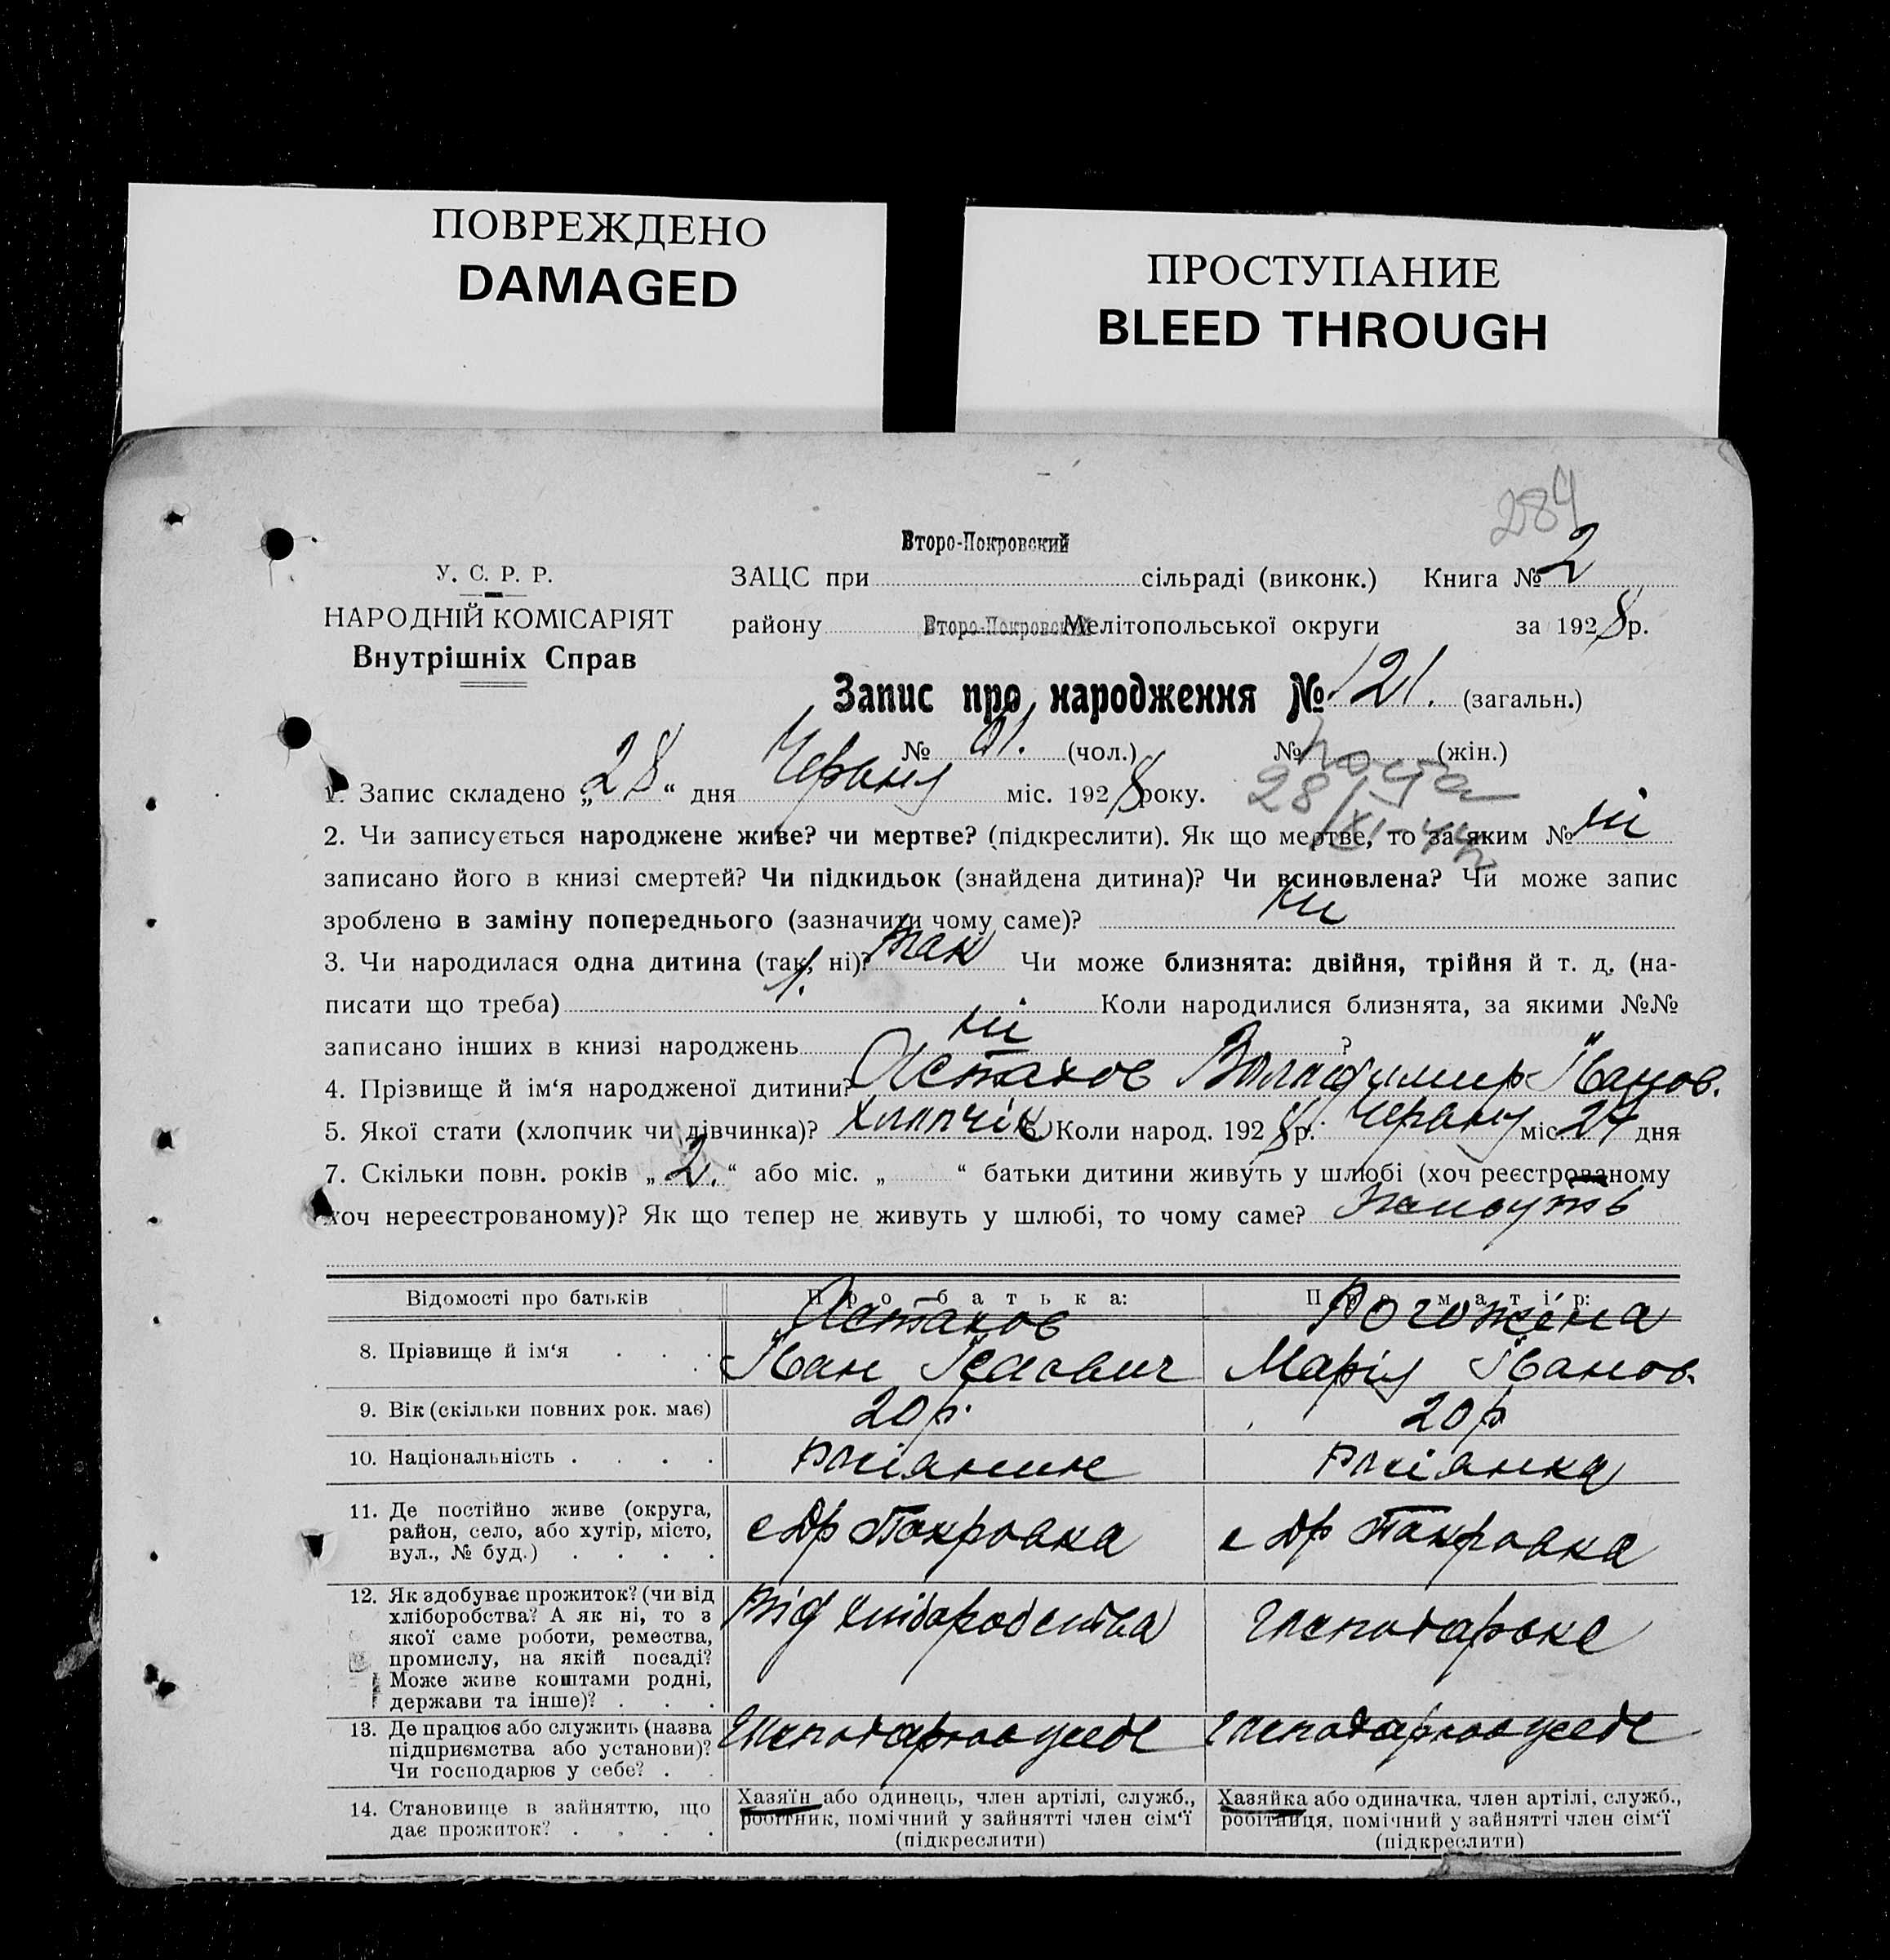 ПОВРЕЖДЕНО
DAMAGED
ПРОСТУПАНИЕ
BLEED THROUGH
284
Второ-Покровский
У. С. Р. Р.
ЗАЦС при сільраді (виконк.) Книга № 2
НАРОДНІЙ КОМІСАРІЯТ
району Второ-Покровский Мелітопольської округи за 1928 р.
Внутрішніх Справ
Запис про народження № 121. (загальн.)
№ 61. (чол.) № (жін.)
1. Запис складено „28“ дня Червня міс. 1928 року.
28/XI-44
2. Чи записується народжене живе? чи мертве? (підкреслити). Як що мертве, то за яким № ні
записано його в книзі смертей? Чи підкидьок (знайдена дитина)? Чи всиновлена? Чи може запис
зроблено в заміну попереднього (зазначити чому саме)? ні
3. Чи народилася одна дитина (так, ні)? так Чи може близнята: двійня, трійня й т. д. (на-
писати що треба) 1. Коли народилися близнята, за якими №№
записано інших в книзі народжень ні ?
4. Прізвище й ім‘я народженої дитини? Астахов Владимир Іванов.
5. Якої стати (хлопчик чи дівчинка)? хлопчік 6. Коли народ. 1928 р. Червня міс. 24 дня
7. Скільки повн. років „2.“ або міс. „ “ батьки дитини живуть у шлюбі (хоч реєстрованому
хоч нереєстрованому)? Як що тепер не живуть у шлюбі, то чому саме? живуть
Відомості про батьків Про батька: Про матір:
Астахов Рогожена
8. Прізвище й ім‘я . . . Іван Ісаович Марія Іванов.
9. Вік (скільки повних рок. має) 20 р. 20 р
10. Національність . . . . росіянин росіянка
11. Де постійно живе (округа,
район, село, або хутір, місто, с Др Покровка с Др Покровка
вул., № буд.) . . . .
12. Як здобуває прожиток? (чи від
хліборобства? А як ні, то з від хліборобства господарска
якої саме роботи, ремества,
промислу, на якій посаді?
Може живе коштами родні,
держави та інше)? . . .
13. Де працює або служить (назва
підприємства або установи)?
Чи господарює у себе? . .
14. Становище в зайняттю, що
дає прожиток? . . . .
Хазяїн або одинець, член артілі, служб.,
робітник, помічний у зайнятті член сім‘ї
(підкреслити)
Хазяйка або одиначка, член артілі, служб.,
робітниця, помічний у зайнятті член сім‘ї
(підкреслити)